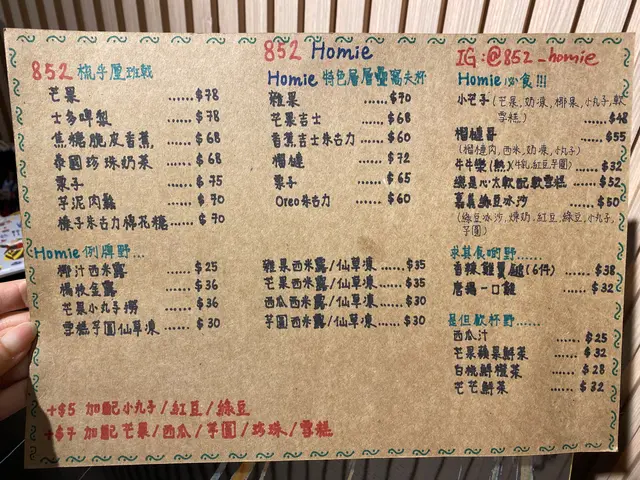 852 Homie
IG:@852_homie
852 梳乎厘班戟
芒果 ......$78
士多啤梨 ......$78
焦糖脆皮香蕉 ......$68
泰國珍珠奶茶 ......$68
栗子 ......$75
芋泥肉鬆 ......$70
榛子朱古力棉花糖 ......$70
Homie 例牌野...
椰汁西米露 ......$25
楊枝金露 ......$36
芒果小丸子撈 ......$36
雪糕芋圓仙草凍 ......$30
Homie 特色層層疊窩夫杯
雜果 ......$70
芒果吉士 ......$68
香蕉吉士朱古力 ......$60
榴槤 ......$72
栗子 ......$65
Oreo朱古力 ......$60
雜果西米露/仙草凍 ......$35
芒果西米露/仙草凍 ......$35
西瓜西米露/仙草凍 ......$30
芋圓西米露/仙草凍 ......$30
Homie 必食!!!
小芒子(芒果,奶凍,椰果,小丸子,軟雪糕) ......$48
榴槤哥 ......$55
(榴槤肉,西米,奶凍,小丸子)
牛牛樂(熱)(牛乳,紅豆,芋圓) ......$32
總是心太軟配軟雪糕 ......$52
嘉義綠豆冰沙 ......$50
(綠豆冰沙,煉奶,紅豆,綠豆,小丸子,芋圓)
求其食啲野......
香辣雞翼鎚(6件) ......$38
唐揚一口雞 ......$32
是但飲杯野......
西瓜汁 ......$25
芒果蘋果鮮菓 ......$32
白桃鮮橙菓 ......$28
芒芒鮮菓 ......$32
+$5 加配小丸子/紅豆/綠豆
+$7 加配芒果/西瓜/芋圓/珍珠/雪糕